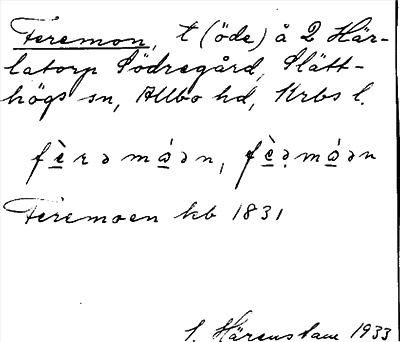 Feremon, t (öde) å 2 Här-
latorp Södregård, Slätt-
högs sn, Allbo hd, Krbs l.
fèrəmóən, fèə̣móən
Feremoen kb 1831
Härenstam 1933